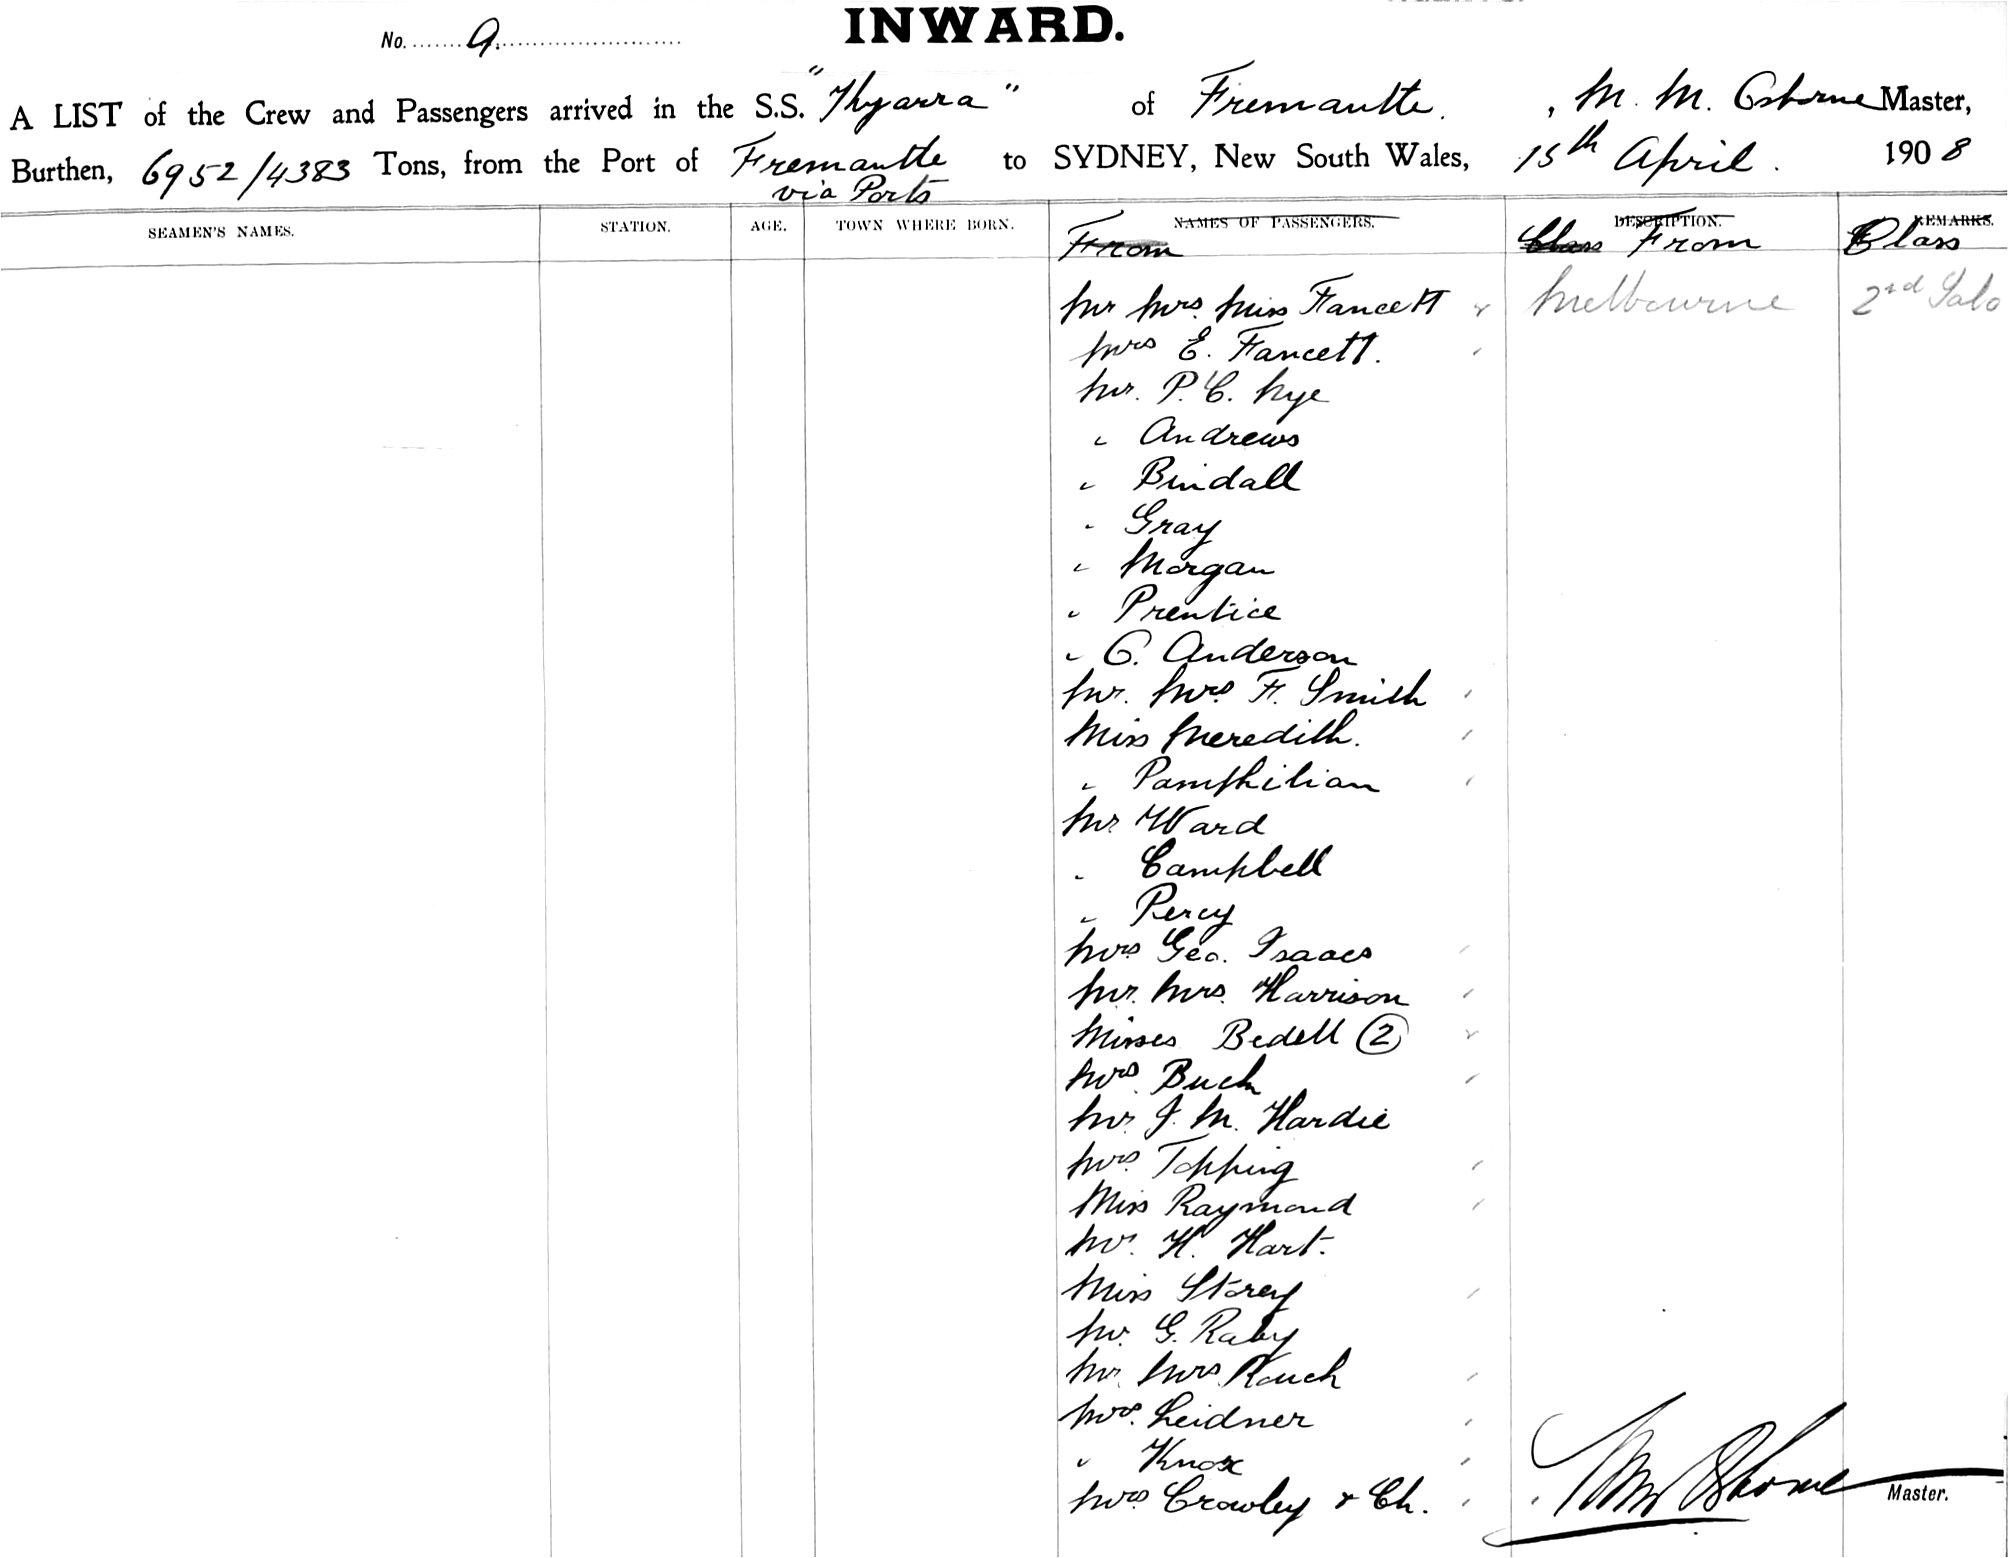 No. 9.
INWARD.
A LIST of the Crew and Passengers arrived in the S.S. "Kyarra" of Fremantle. , M. M. Osborne Master,
Burthen, 6952/4383 Tons, from the Port of Fremantle to SYDNEY, New South Wales, 15th April. 1908
via Ports
SEAMEN'S NAMES. STATION. AGE. TOWN WHERE BORN. NAMES OF PASSENGERS. DESCRIPTION. REMARKS.
From Class From Class
Mr Mrs. Miss Fancett Melbourne 2nd Salo
Mrs E. Fancett.
Mr. P. C. Nye
" Andrews
" Bindall
" Gray
" Morgan
" Prentice
" G. Anderson
Mr. Mrs. F. Smith
Miss Meredith.
" Pamphilian
Mr Ward
" Campbell
" Percy
Mrs Geo. Isaacs
Mr. Mrs. Harrison
Misses Bedell (2)
Mrs. Buch
Mr. J. M. Hardie
Mrs. Topping
Miss Raymond
Mr. H. Hart.
Miss Storey
Mr. G. Raby
Mr. Mrs. Rouch
Mrs. Leidner
" Knox
Mrs Crowley & Ch.
MM Osborne Master.